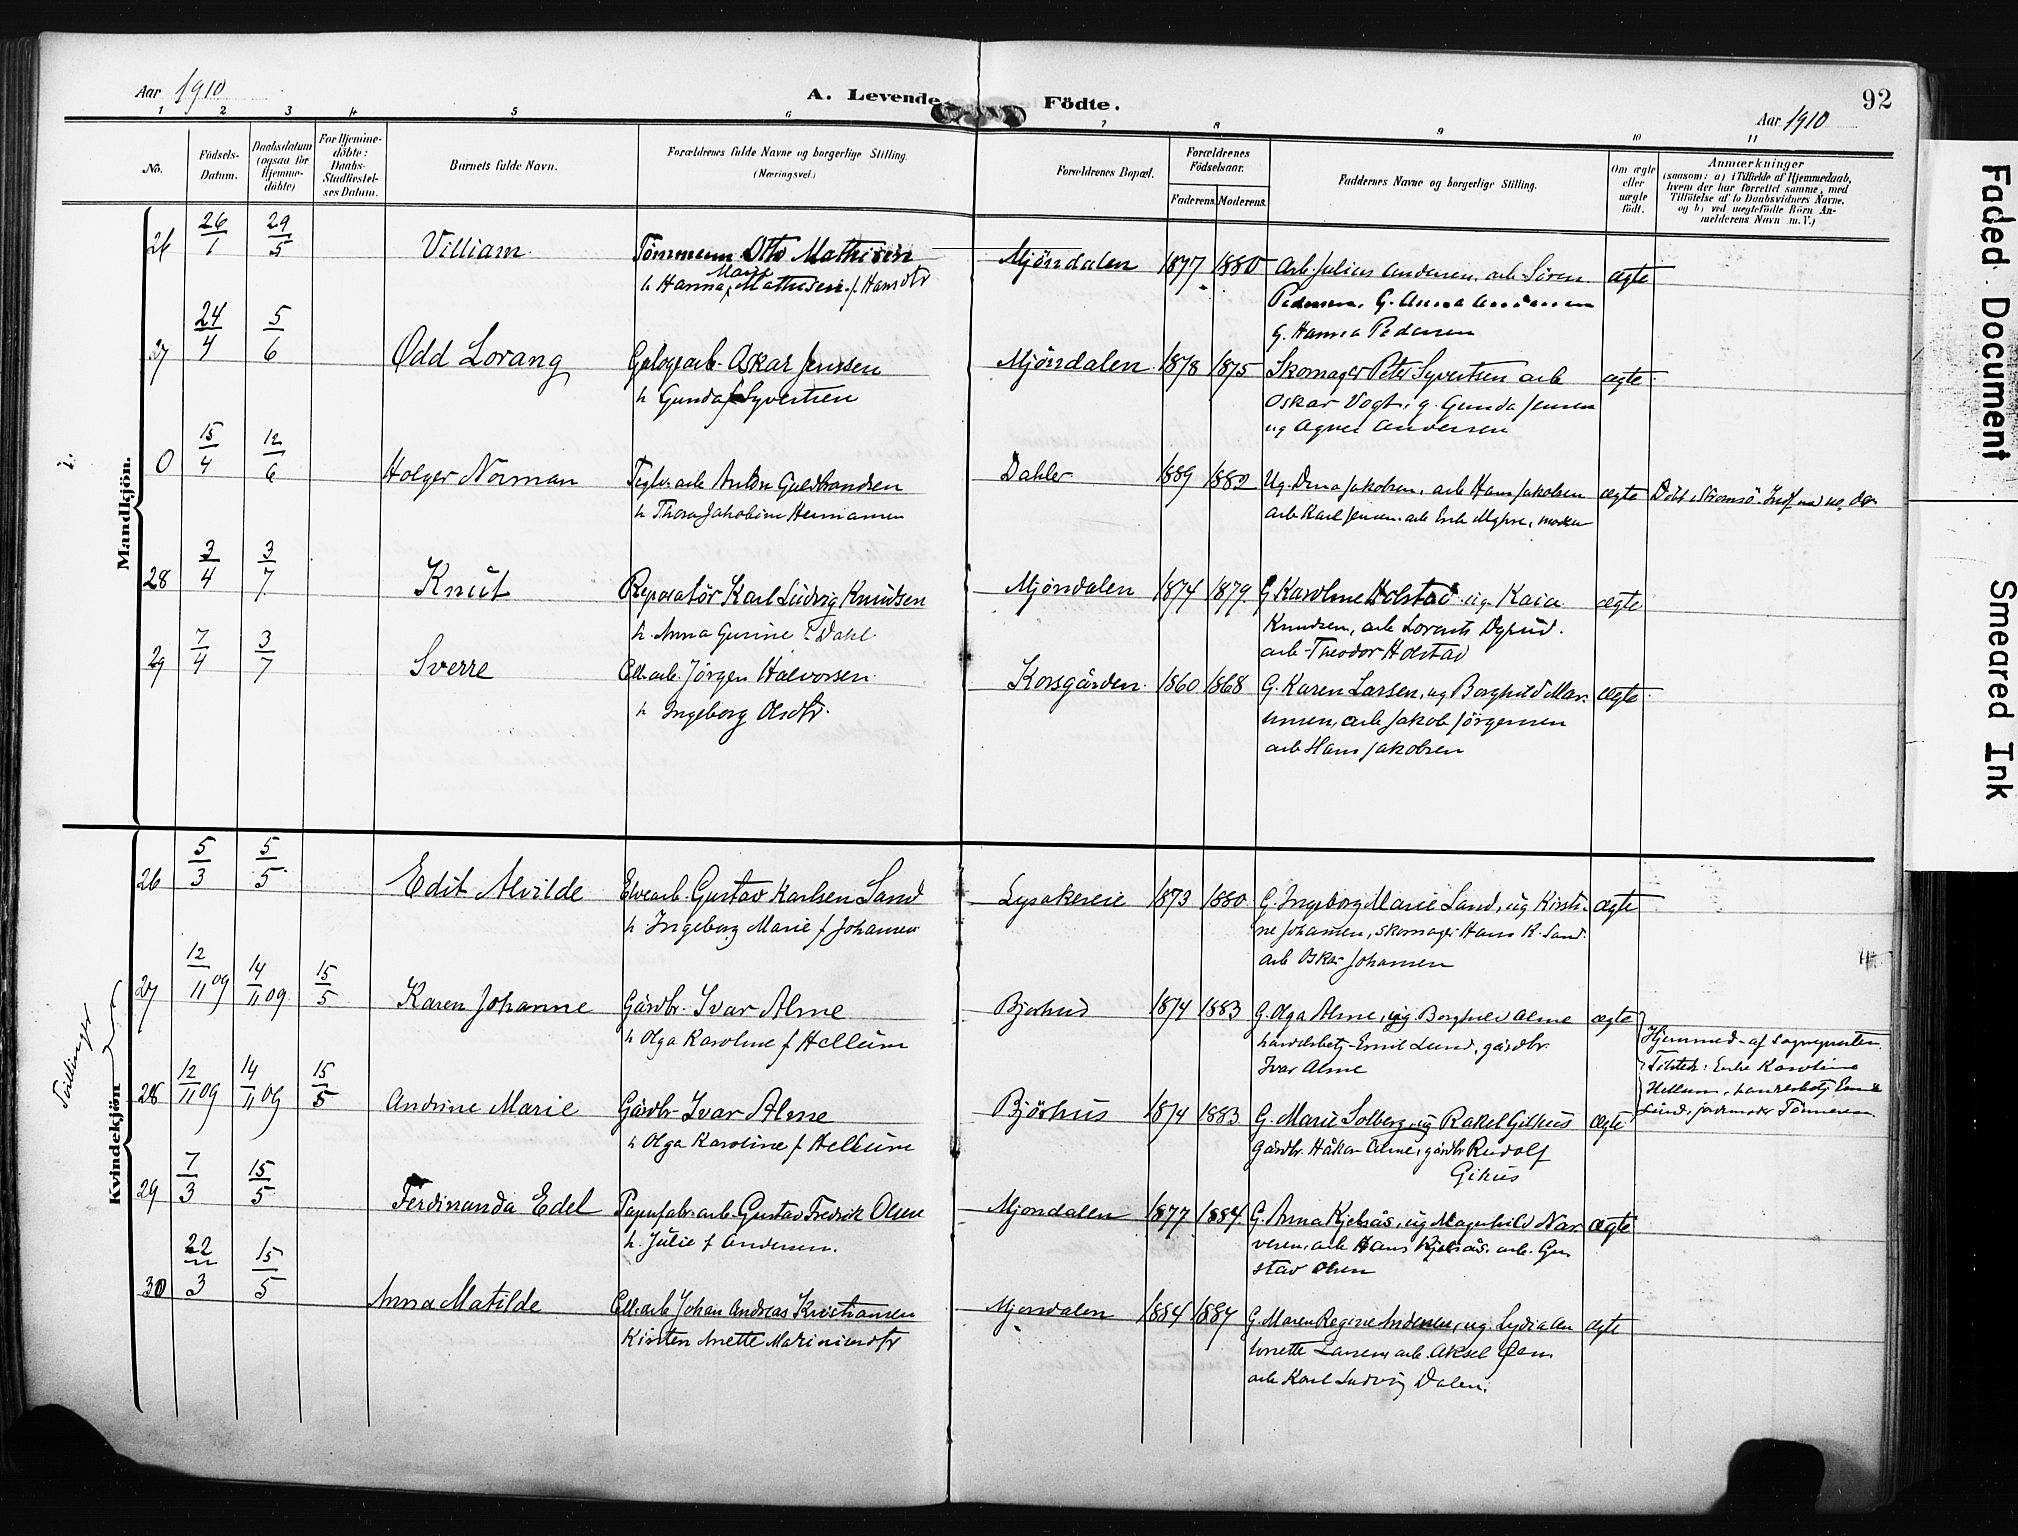 Aar 1910
A. Levende Födte.
92
Aar 1910
1 2 3 4 5 6 7 8 9 10 11
No.
Födsels-Datum.
Daabsdatum (ogsaa for Hjemme-döbte)
For Hjemme-döbte: Daabs-Stadfæstel-ses Datum.
Barnets fulde Navn.
Forældrenes fulde Navne og borgerlige Stilling. (Næringsvei.)
Forældrenes Bopæl.
Forældrenes Födselsaar.
Faderens. Moderens.
Faddernes Navne og borgerlige Stilling.
Om ægte eller uægte födt.
Anmærkninger
(saasom: a) i Tilfælde af Hjemmedaab, hvem der har forrettet samme, med Tilföielse af to Daabsvidners Navne, og b) ved uægtefödte Börn An-melderens Navn m. V.)
Mandkjön.
26 26/1 29/5 Villiam Tömmerm. Otto Mathisen Mjöndalen 1877 1880 Arb. Julius Andersen, arb. Sören ægte
h. Hanna Marie Mathisen f. Hansdtr Pedersen, G. Anna Andersen
g. Hanna Pedersen
27 24/4 5/6 Odd Lorang Oskar Jenssen Mjöndalen 1878 1875 Skomager Peter Syvertsen arb ægte
h Gunda f Syvertsen Oskar Vogt, g. Gunda Jensen
ug Agnes Andersen
0 15/4 12/6 Holger Norman Teglv. arb Anton Guldbrandsen Dahler 1889 1882 Ug. Dina Jakobsen, arb Hans Jakobsen ægte Döbt i Strömsö.
h Thora Jakobine Hermansen arb Karl Jensen, arb Erik moder
28 3/4 3/7 Knut Reparatör Karl Ludvig Knudsen Mjöndalen 1874 1879 G Karoline Holstad ug. Kaia ægte
h. Anna Gurine f. Dahl Knudsen, arb Lorents
arb. Theodor Holstad
29 7/4 3/7 Sverre Cell. arb. Jörgen Halvorsen Korsgården 1860 1868 G. Karen Larsen, ug Borghild Mar- ægte
h Ingeborg Olsdtr. tinsen, arb Jakob Jörgensen
arb Hans Jakobsen
Kvindekjön
26 5/3 5/5 Edit Alvilde Elvearb. Gustav Karlsen Sand Lysakereie 1873 1880 G. Ingeborg Marie Sand, ug Kristi- ægte
h Ingeborg Marie f Johansen ne Johansen, skomager Hans K. Sand
arb Oskar Johansen
Tvillinger
27 12/11 09 14/11 09 15/5 Karen Johanne Gårdbr. Ivar Alme Bjørhus 1874 1883 G. Olga Alme, ug Borghild Alme ægte
h Olga Karoline f Hellum handelsbetj. Emil Lund, gårdbr.
Ivar Alme
Hjemmed. af sognepresten.
Tilsted: Enke Karoline
Hellum, handelsbetj. Emil
Lund, jordmoder Tönnesen
28 12/11 09 14/11 09 15/5 Andrine Marie Gårdbr. Ivar Alme Bjørhus 1874 1883 G. Marie Solberg, ug Rakel Gilhus ægte
h Olga Karoline f Hellum gårdbr. Håkon Alme, gårdbr Rudolf
Gilhus
29 7/3 15/5 Ferdinanda Edel Papirfabr. arb. Gustav Fredrik Olsen Mjöndalen 1877 1884 G. Anna Kjelsås, ug Magnhild Nar- ægte
h. Julie f Andersen. vesen, arb Hans Kjelsås, arb. Gu-
stav Olsen
30 22/3 15/5 Anna Matilde Cell. arb Johan Andreas Kristiansen Mjöndalen 1884 1887 G. Maren Regine Andersen, ug. Lydia An- ægte
Kirsten Anette Mariniusdtr tonette Larsen, arb. Aksel
arb Karl Ludvig Dalen.
Faded Document
Smeared Ink